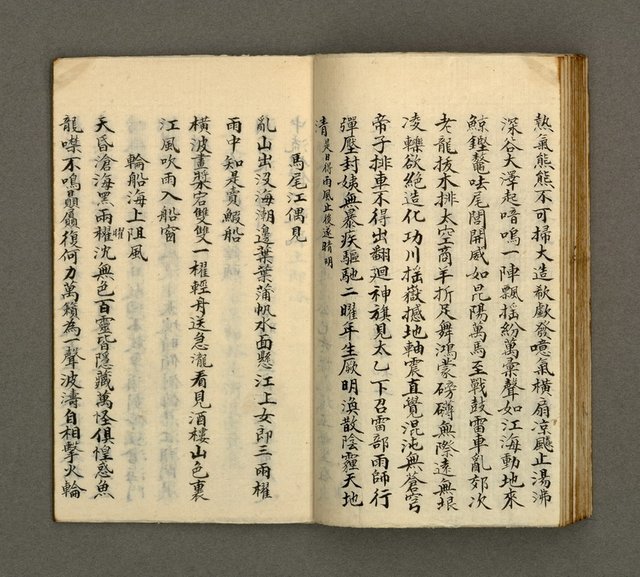 熱氣熊熊不可掃大造欷歔發噫氣橫扇涼飈止湯沸
深谷大澤起喑嗚一陣飄搖紛萬彙聲如江海動地來
鯨鏗鼇呿尾閭開威如昆陽萬馬至戰鼓雷車亂郊次
老龍拔木排太空商羊折足舞鴻蒙磅礡無際遠無垠
凌轢欲絕造化功川搖嶽撼地軸震直覺混沌無蒼穹
帝子排車不得出翻迴神旗見太乙下召雷部雨師行
彈壓封姨無暴疾驅馳二曜年生厥明渙散陰霾天地
清 是日得雨風止後遂晴明
馬尾江偶見
亂山出沒海潮邊葉葉蒲帆水面懸江上女郎三兩櫂
雨中知是賣蝦船
橫波畫槳宕雙雙一櫂輕舟送急瀧看見酒樓山色裏
江風吹雨入船窗
輪船海上阻風
天昏滄海黑雨櫂沈無色百靈昏隱藏萬怪俱惶惑魚
曜
龍噤不鳴贔屭復何力萬籟為一聲波濤自相擊火輪